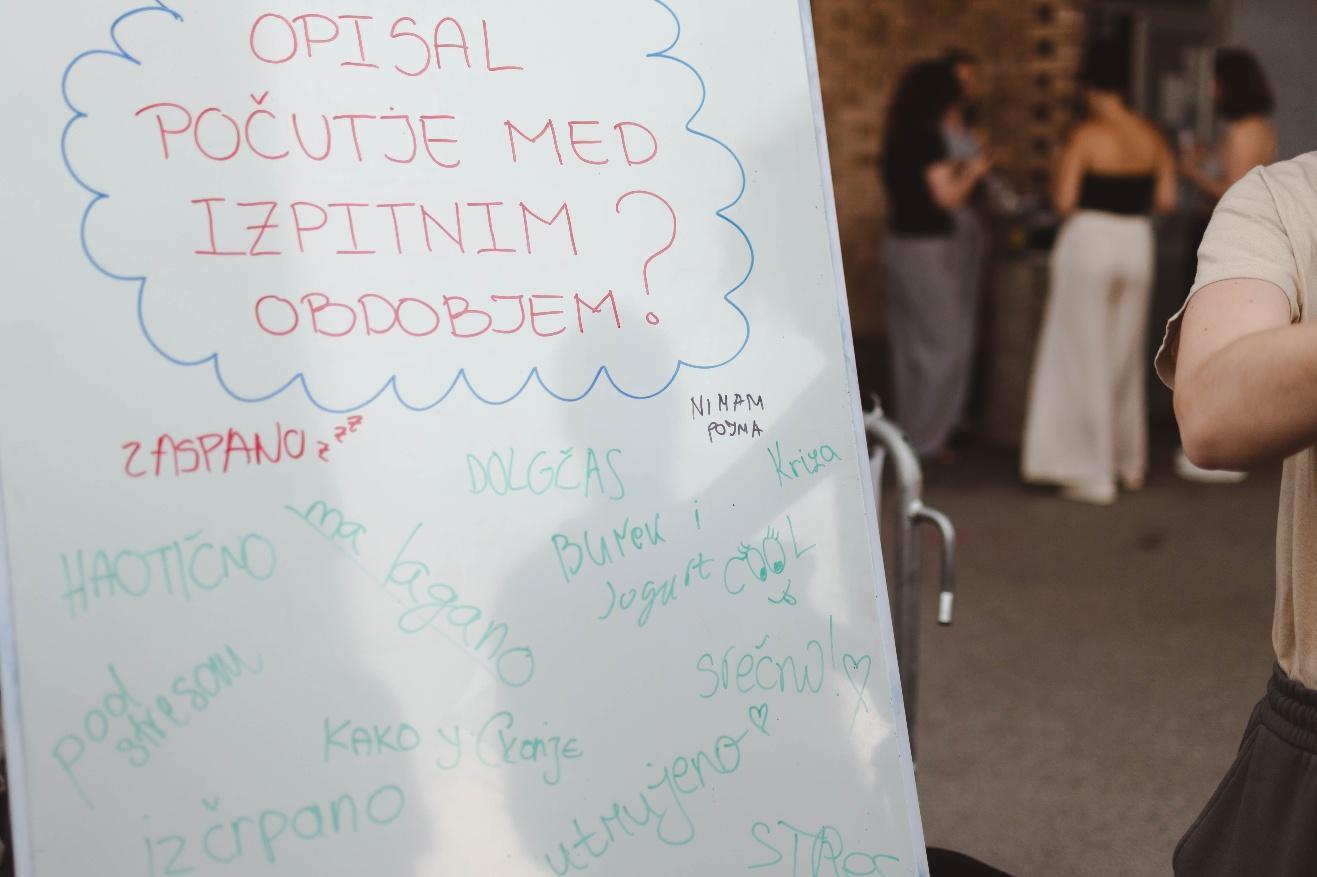 OPISAL
POČUTJE MED
IZPITNIM
OBDOBJEM?
NIMAM
POJMA
ZASPANO zzz
DOLGČAS
Kriza
HAOTIČNO
ma lagano
BUREK i
Jogurt COOL
pod
stresom
srečno!
KAKO
izčrpano
utrujeno